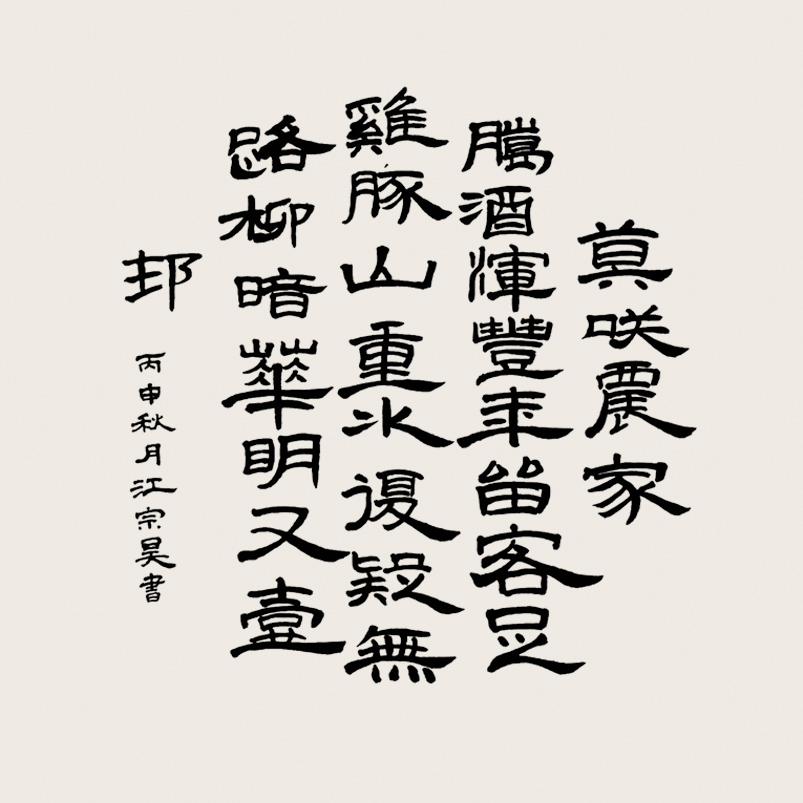 莫咲農家
臘酒渾豐年留客足
雞豚山重水復疑無
路柳暗華明又壹
邨
丙申秋月江宗昊書